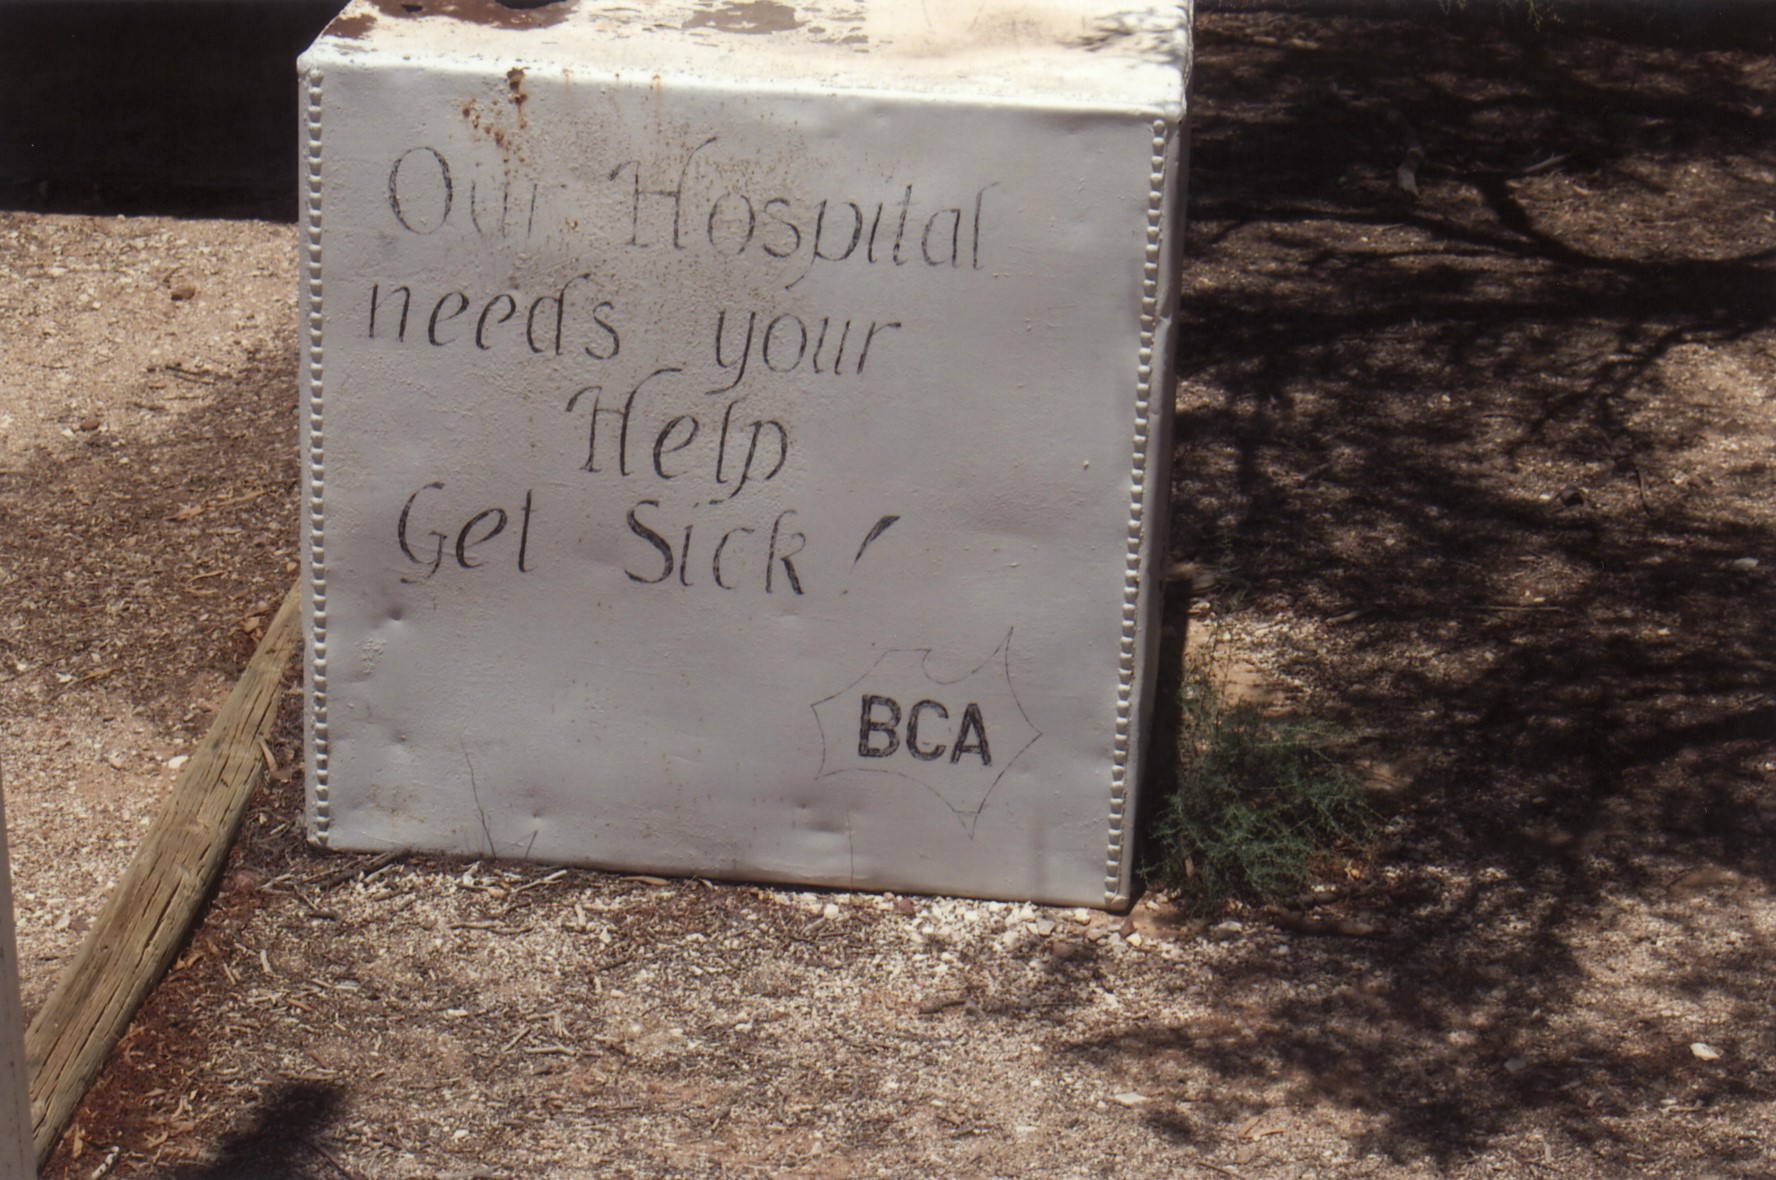 Our Hospital
needs your
Help
Get Sick!
BCA